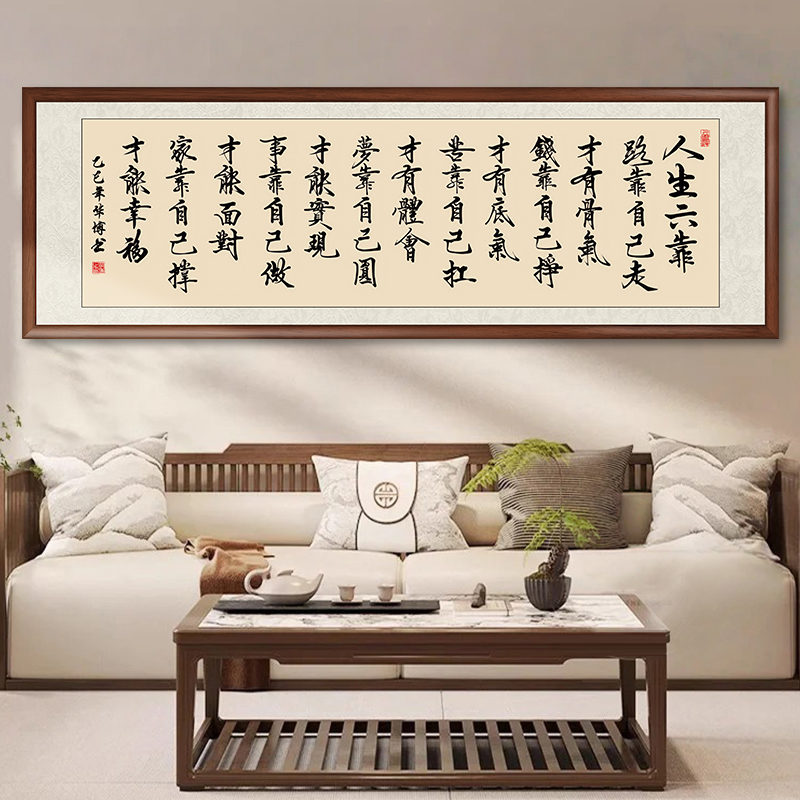 人生六靠
路靠自己走
才有骨氣
錢靠自己掙
才有底氣
苦靠自己扛
才有體會
夢靠自己圓
才能實現
事靠自己做
才能面對
家靠自己撐
才能幸福
乙巳年华博书